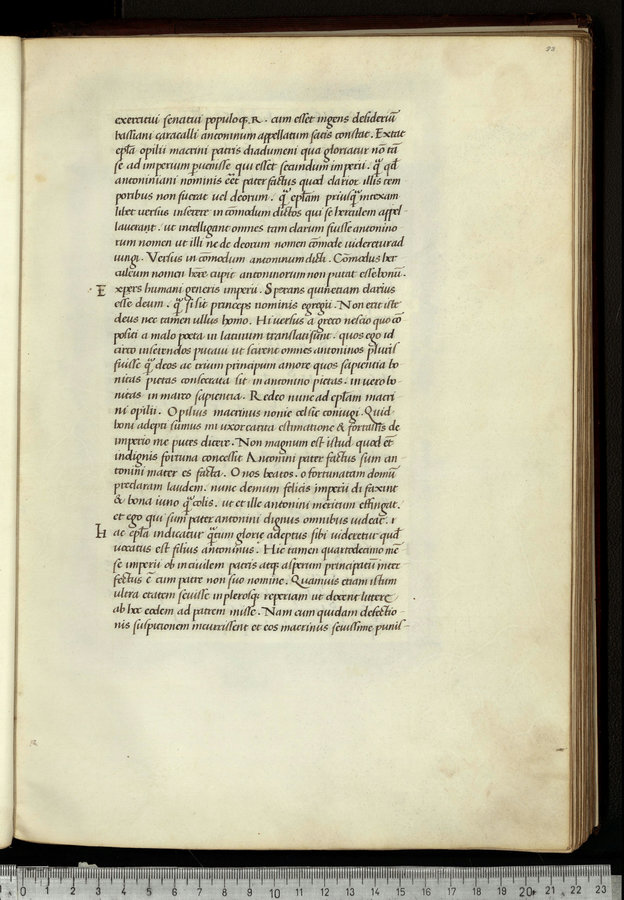 93
exercitui senatui populoq. R. cum esset ingens desideriū
bassiani caracalli antoninum appellatum satis constat. Extat
epl̄a opilii macrini patris diadumeni qua gloriatur nō tā
se ad imperium puenisse qui esset secundum imperii. q̄ qd̄
antoniniani nominis eēt pater factus quod clarior illis tem
poribus non fuerat uel deorum. q̄ epl̄am priusq̄ intexam
libet uersus inserere in cōmodum dictos qui se herculem appel-
lauerant. ut intelligant omnes tam clarum fuisse antonino
rum nomen ut illi ne de deorum nomen cōmode uideretur ad
iungi. Versus in cōmodum antoninum dicti. Cōmodus her
culeum nomen hēre cupit antoninorum non putat esse bonū.
E xpers humani generis imperii. Sperans quinetiam clarius
esse deum. q̄ si sit princeps nominis egregii. Non erit iste
deus nec tamen ullus homo. Hi uersus a greco nescio quo cō
positi a malo poeta in latinum translati sunt. quos ego id
circo inserendos putaui ut scirent omnes antoninos pluris
fuisse q̄ deos ac trium principum amore quos sapientia bo
nitas pietas consecrata sit in antonino pietas. in uero bo
nitas in marco sapientia. Redeo nunc ad epl̄am macri
ni opilii. Opilius macrinus nonie celsie coniugi. Quid
boni adepti sumus mi uxor carita estimatione & fortassis de
imperio me putes dicere. Non magnum est istud quod et
indignis fortuna concessit Antonini pater factus sum an
tonini mater es facta. O nos beatos. o fortunatam domū
preclaram laudem. nunc demum felicis imperii di faxint
& bona iuno q̄ colis. ut et ille antonini meritum effingat.
et ego qui sum pater antonini dignus omnibus uidear.
H ac epl̄a indicatur q̄tum glorie adeptus sibi uideretur quod
uocatus est filius antoninus. Hic tamen quartodecimo mē
se imperii ob inciuilem patris atq; asperum principatū inter
fectus ē cum patre non suo nomine. Quamuis etiam istum
ultra etatem seuisse in plerosq; reperiam ut docent littere
ab hoc eodem ad patrem misse. Nam cum quidam defectio-
nis suspitionem incurrissent et eos macrinus seuissime punis-